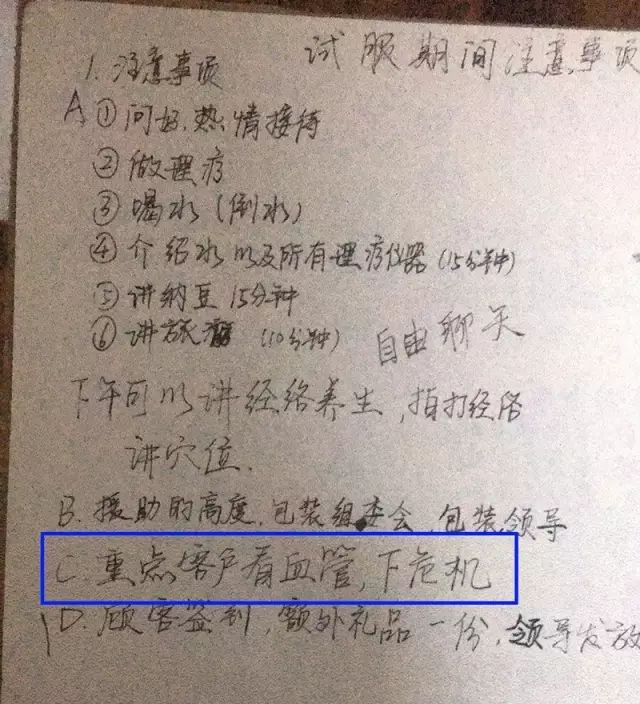 试服期间注意事项
1. 注意事项
A ① 问好.热情接待
② 做理疗
③ 喝水（倒水）
④ 介绍水以及所有理疗仪器（15分钟）
⑤ 讲纳豆 15分钟
⑥ 讲旅 （10分钟） 自由聊天
下午可以讲经络养生,拍打经络
讲穴位.
B. 援助的高度.包装组委会.包装领导
C 重点客户看血管,下危机
D. 顾客签到,额外礼品一份,领导发放